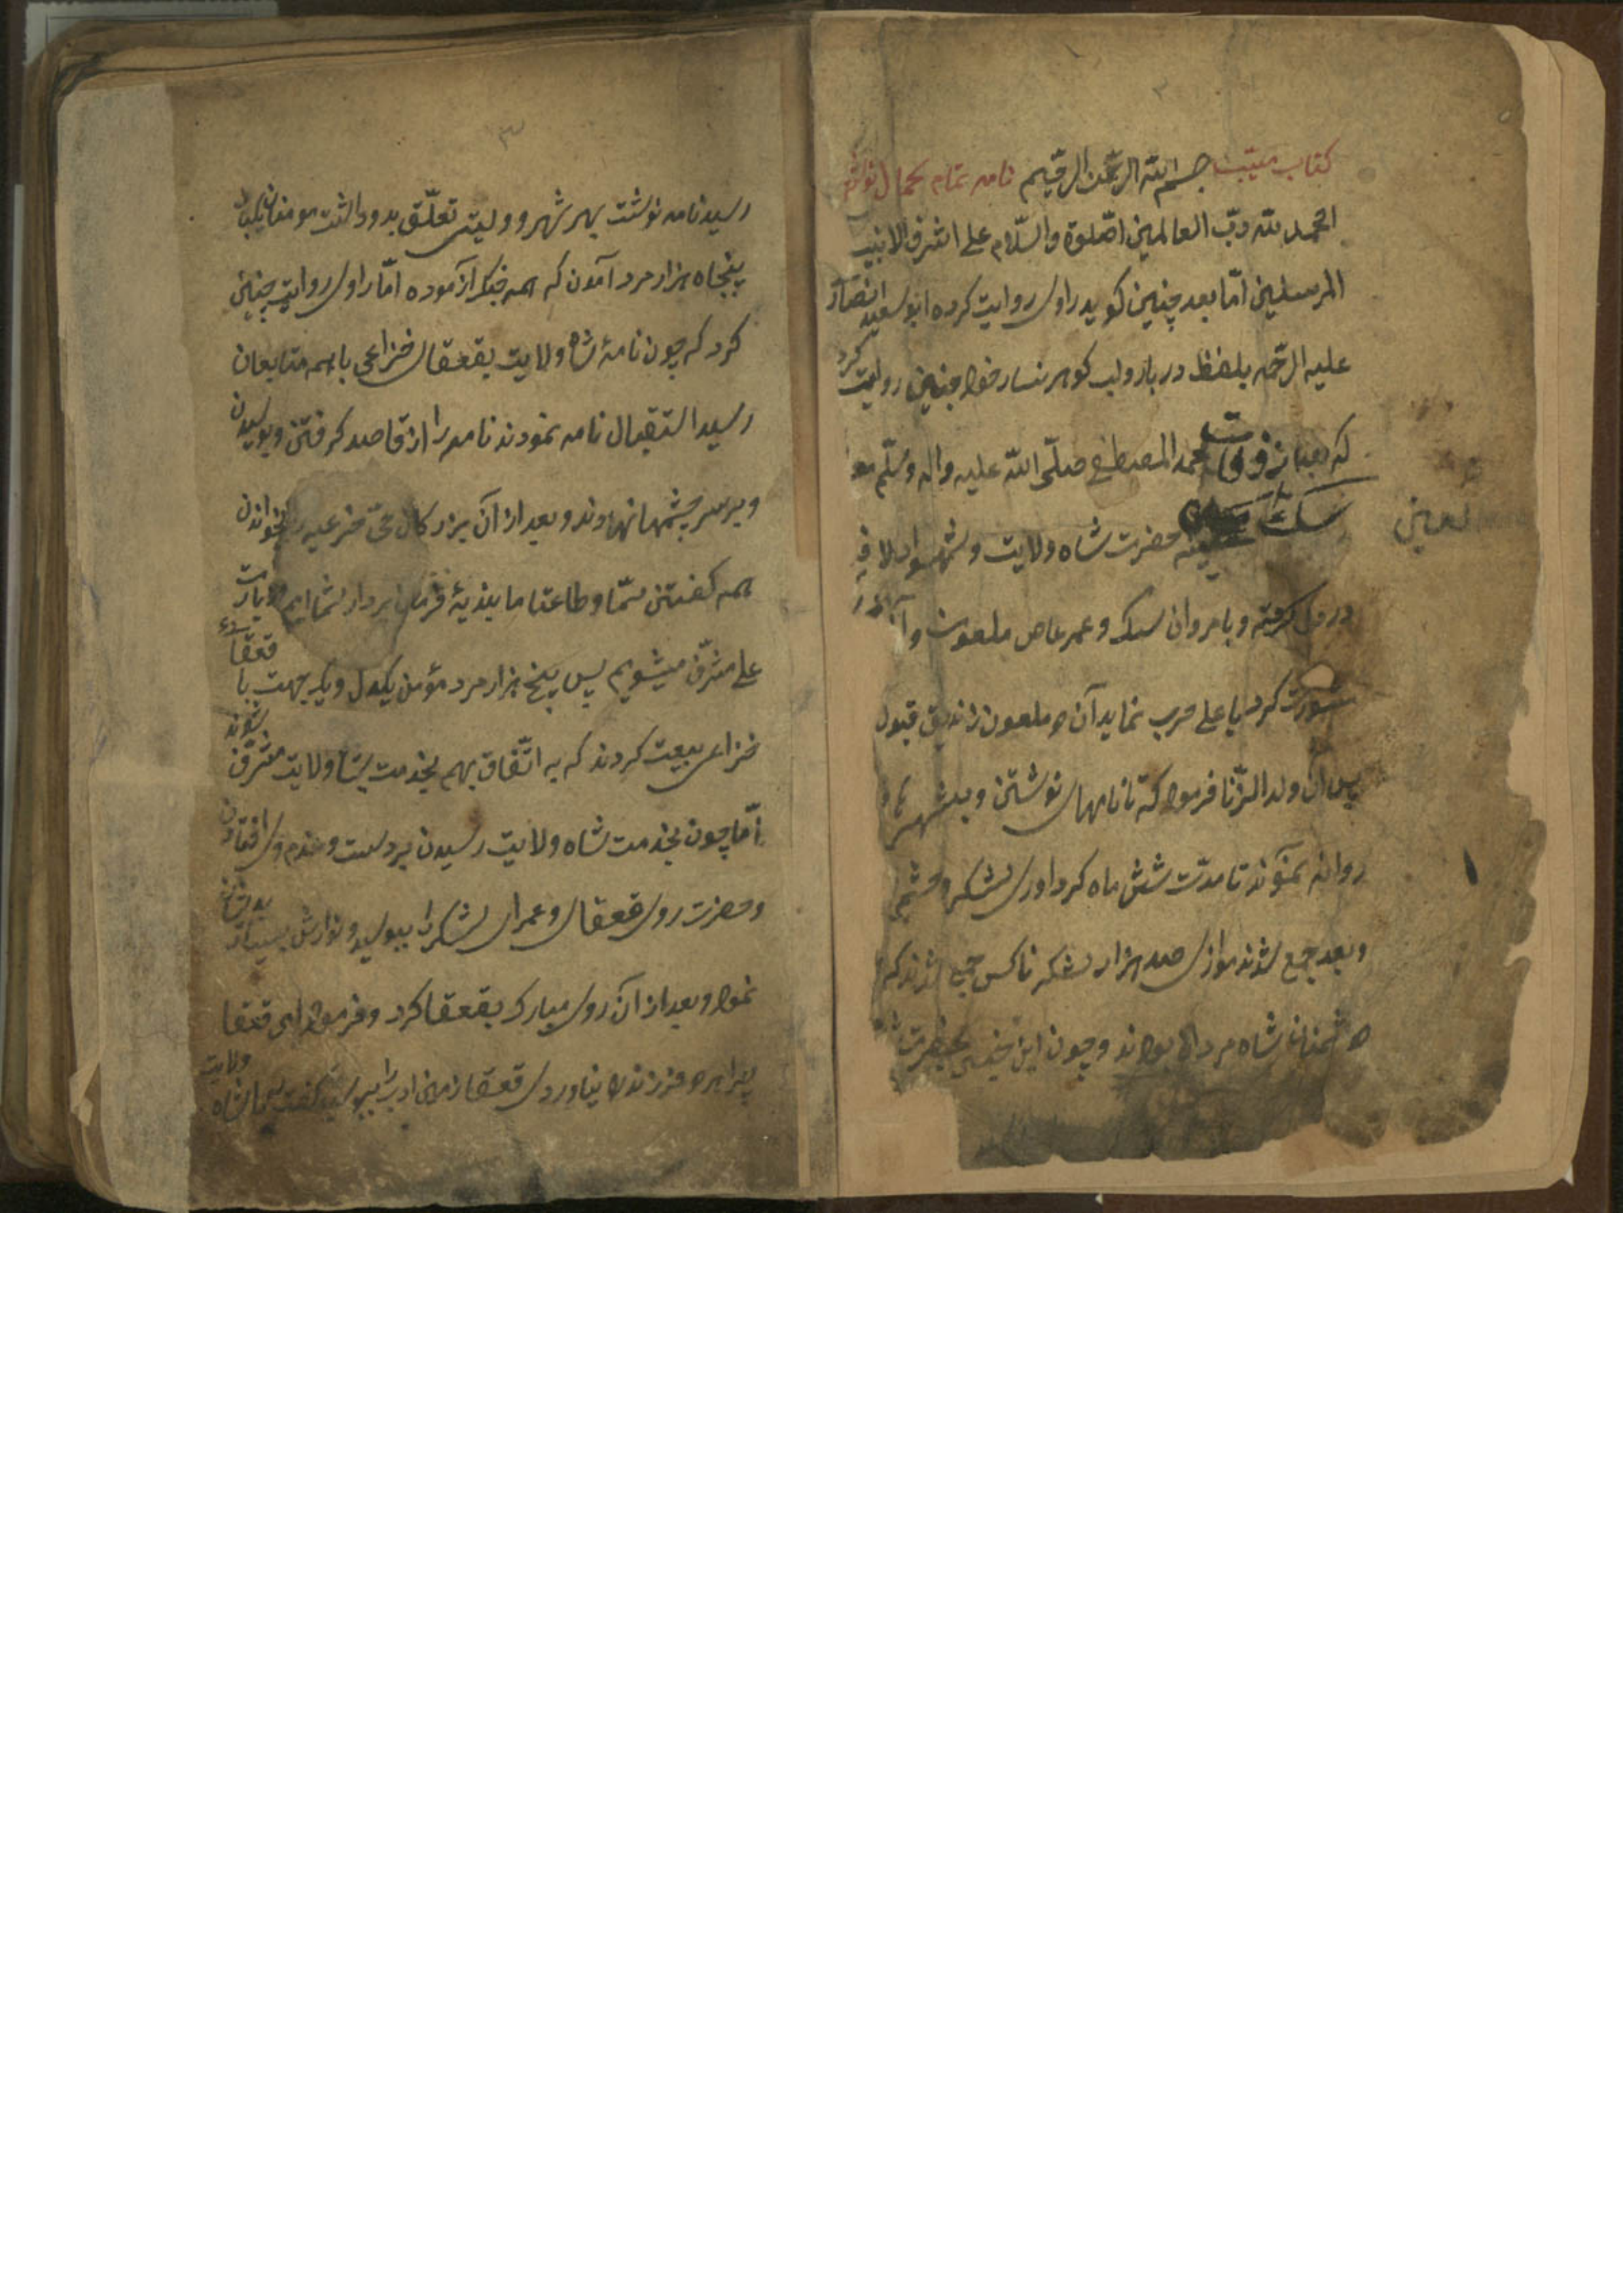 کتاب مسیّب بسم الله الرحمن الرحیم نامه تمام
الحمد لله ربّ العالمین اصّلوة والسّلام علی اشرف الانبیا
المرسلین امّا بعد چنین کوید راوی روایت کرده ابو سعید انصار
علیه الرّحمه بلفظ دربار ولب کوهر نسار خود چنین روایت کرد
که بعد از فوات محمد المصطفی صلّی الله علیه واله وسلّم
لعین
سک حضرت شاه ولایت و
در دل کرفته و با مروان سک و عمر عاص ملعون و
مشورت کرد با علی حرب نماید آن ملعون زاندیق قبول
پس ان ولد الزّنا فرمود که تا نامهای نوشتن و بشهر
روانه نمودند تا مدّت شش ماه کرد اوری لشکر و حشم
و بعد جمع شدند موازی صد هزار لشکر ناکس جمع شدند که
دشمنان شاه مردان بودند و چون این بحضرت
۳
رسید نامه نوشت بهر شهر و ولیتی تعلّق بدو داشت مومنان
پنجاه هزار مرد آمدن که همه جنک آزموده امّا راوی روایت چنین
کرد که چون نامهٔ شاه ولایت بقعقای خزاعی با همه متابعان
رسید استقبال نامه نمودند نامه را از قاصد کرفتن و بوسیدن
و بر سر چشمها نهادند و بعد از آن بزرکان بخواندن
همه کفتن سمّا وطاعتا ما بندیهٔ فرمان بردار شما ایم
علی مشرّف میشویم پس پنج هزار مرد مؤمن یکدل و یک جهت با قعقا
خزاعی بیعت کردند که به اتّفاق بهم بخدمت شاه ولایت مشرّف شوند
امّا چون بخدمت شاه ولایت رسیدن بر دست و قدم وی افتادن
و حضرت روی قعقای و عمرای لشکر را ببوسید و نوازش بسیار
نمود و بعد از آن روی مبارک بقعقا کرد و فرمود ای قعقا
چرا همه فرزندان نیاوردی قعقا زمین ادب را ببوسید کفت یا شاه ولایت